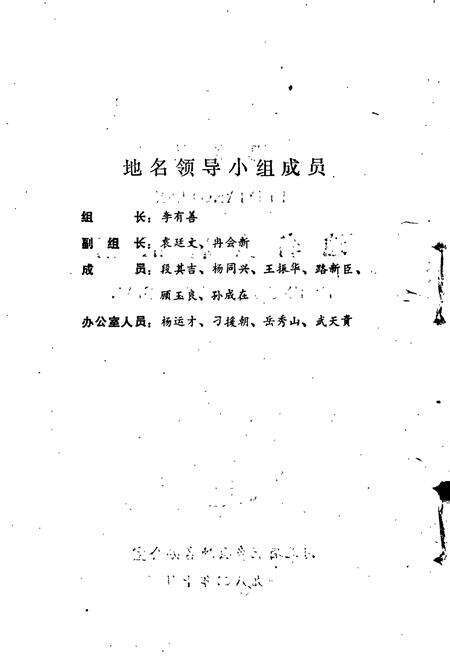 地名领导小组成员
组 长：李有善
副 组 长：袁廷文、冉会新
成 员：段其吉、杨同兴、王振华、路新臣、
顾玉良、孙成在
办公室人员：杨运才、刁援朝、岳秀山、武天贵